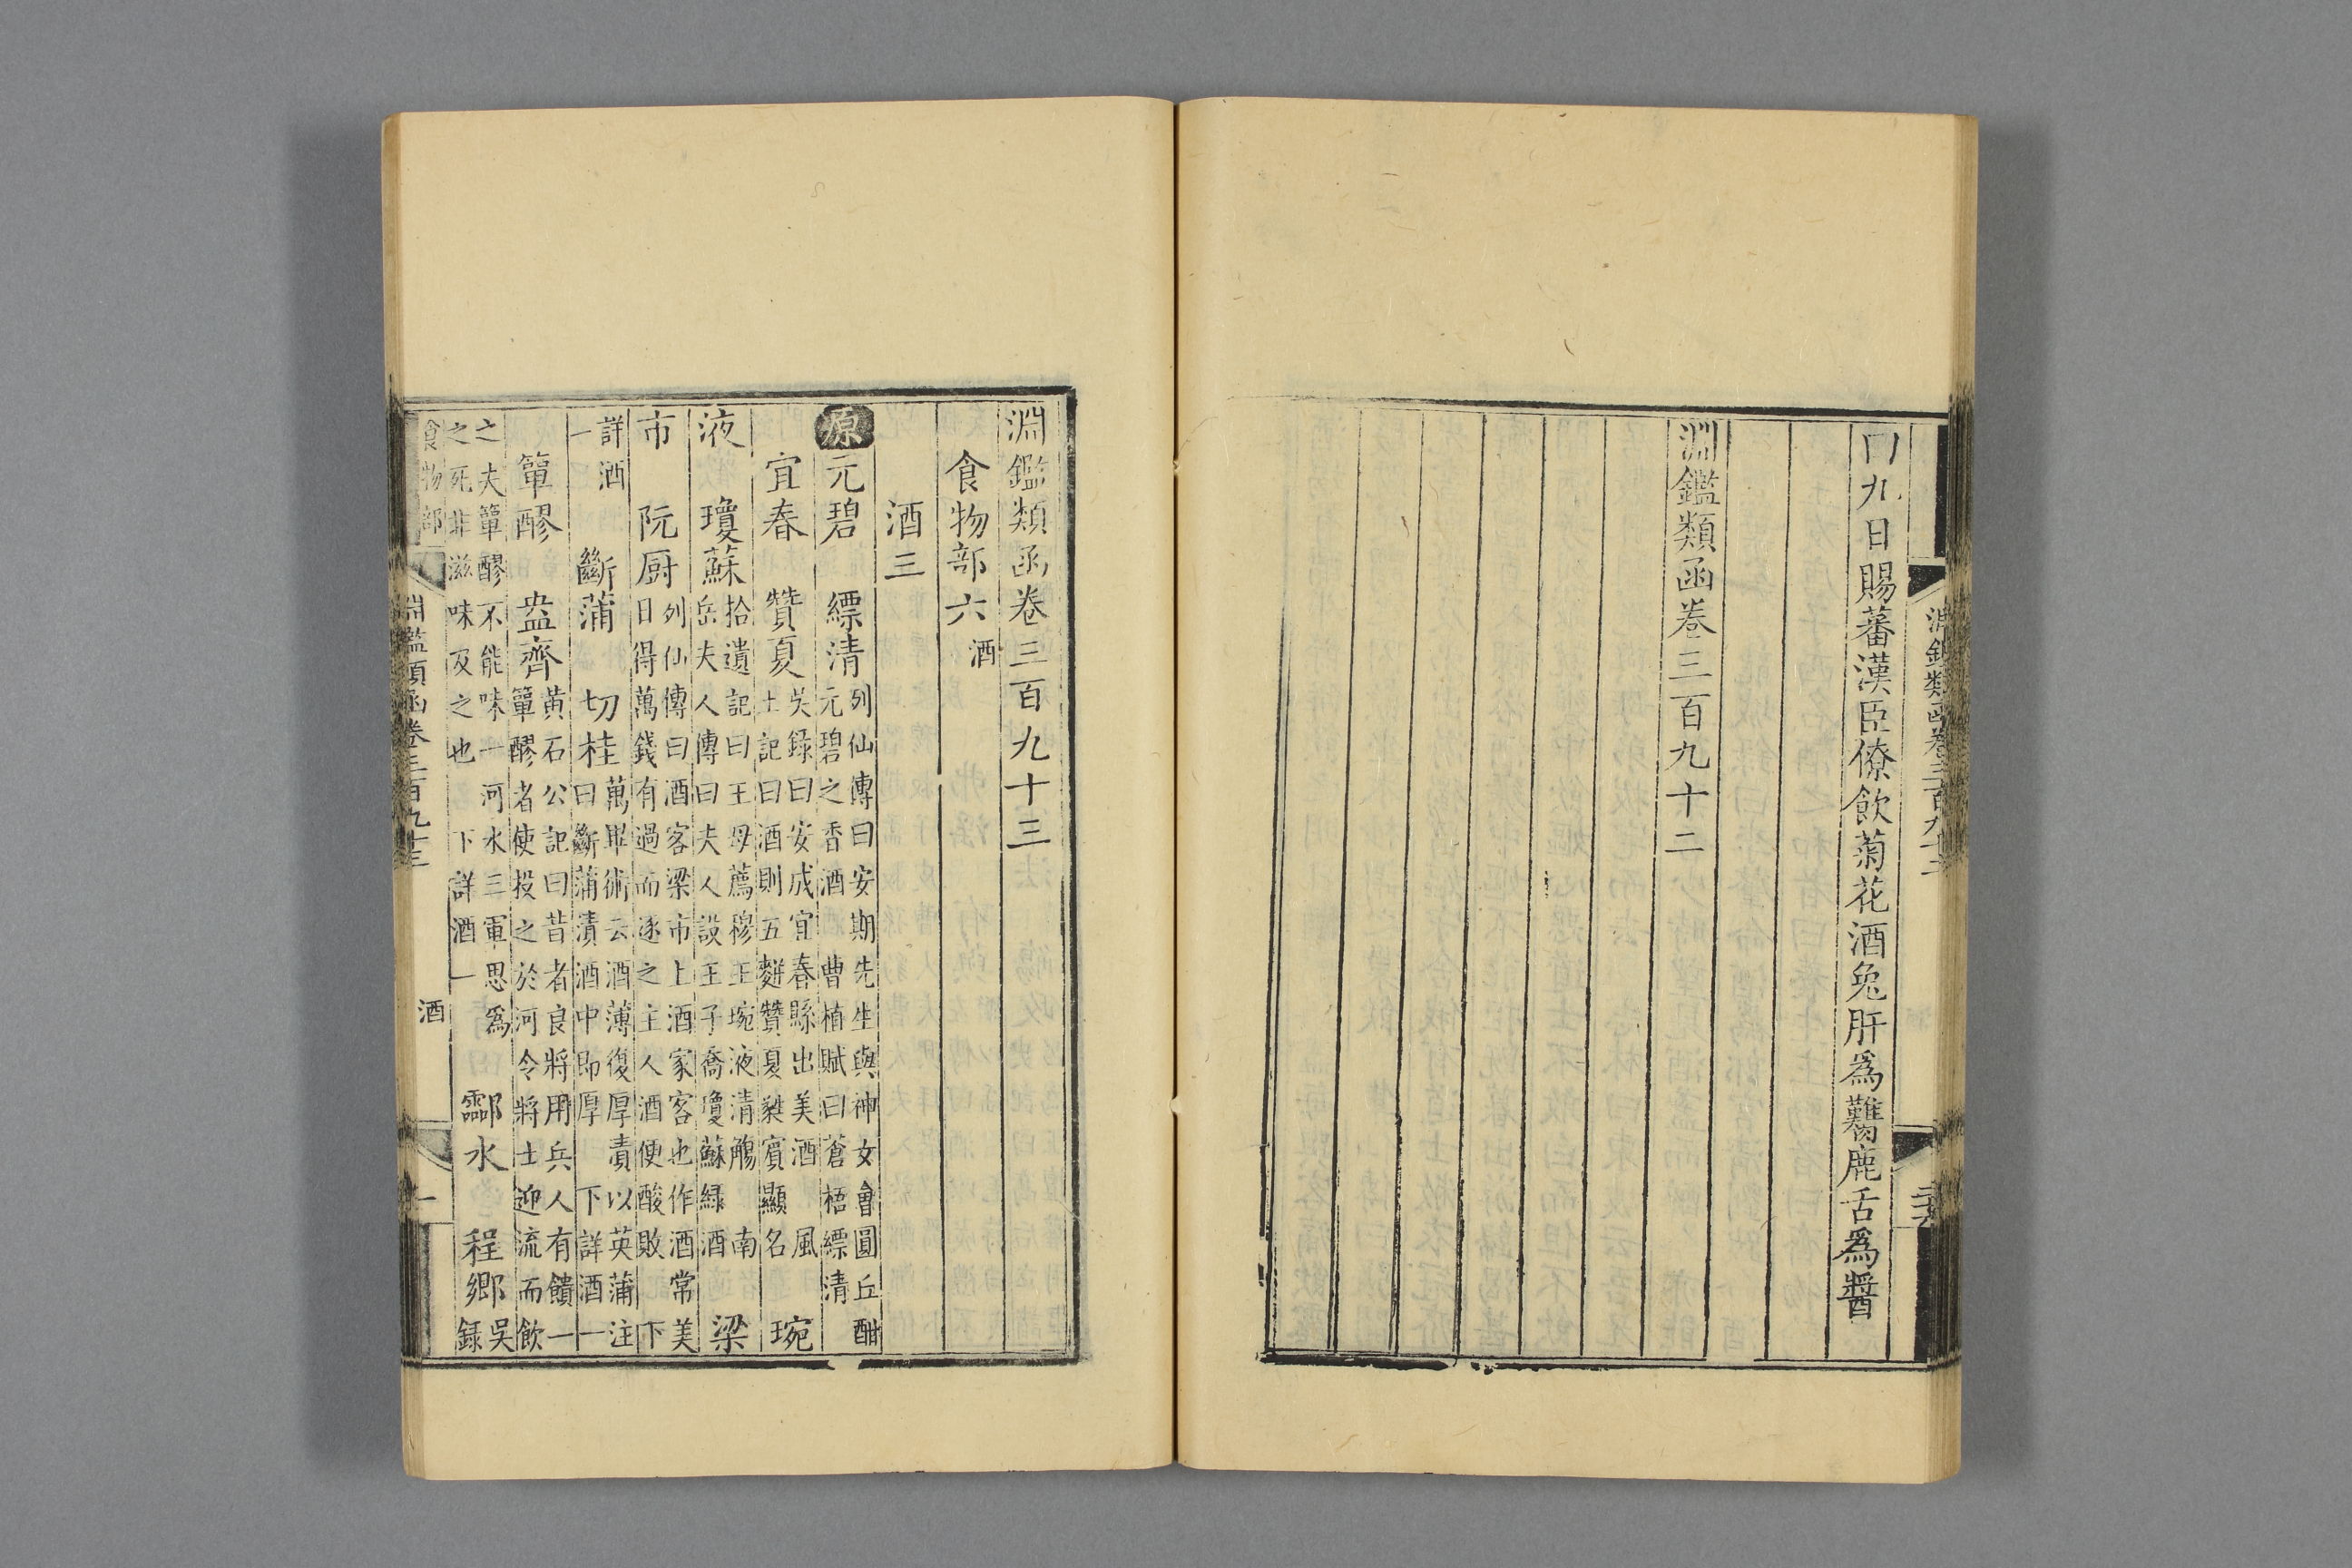 淵鑑類函卷三百九十二
九日賜蕃漢臣僚飲菊花酒兔肝爲臡鹿舌爲醬
淵鑑類函卷三百九十二
淵鑑類函卷三百九十三
食物部六 酒
酒三
原 元碧 縹清 列仙傳曰安期先生與神女會圓丘酣
元碧之香酒 曹植賦曰蒼梧縹清
宜春 贊夏 吳錄曰安成宜春縣出美酒 風
土記曰酒則五贊夏蕤賓顯名 琬
液 瓊蘇 拾遺記曰王母薦穆王琬液清觴 南
岳夫人傳曰夫人設王子喬瓊蘇緑酒 梁
市 阮厨 列仙傳曰酒客梁市上酒家客也作酒常美
日得萬錢有過而逐之主人酒便酸敗 下
詳酒
一 斷蒲 切桂 萬畢術云酒薄復厚漬以英蒲注
曰斷蒲漬酒中即厚 下詳酒一
簞醪 盎齊 黄石公記曰昔者良將用兵人有饋一
簞醪者使投之於河令將士迎流而飲
之夫簞醪不能味一河水三軍思爲
之死非滋味及之也 下詳酒一 酃水 程鄉 吳
録
食物部 淵鑑類函卷三百九十三 酒 一